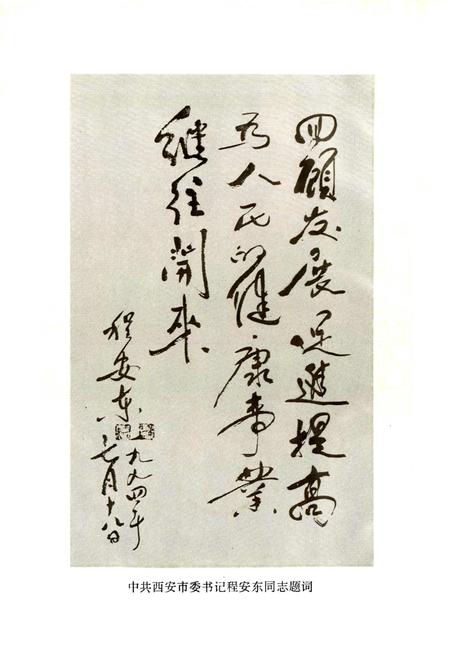 回顾发展促进提高
为人民的健康事业
继往開来
程安东
一九九四年
七月十八日
中共西安市委书记程安东同志题词